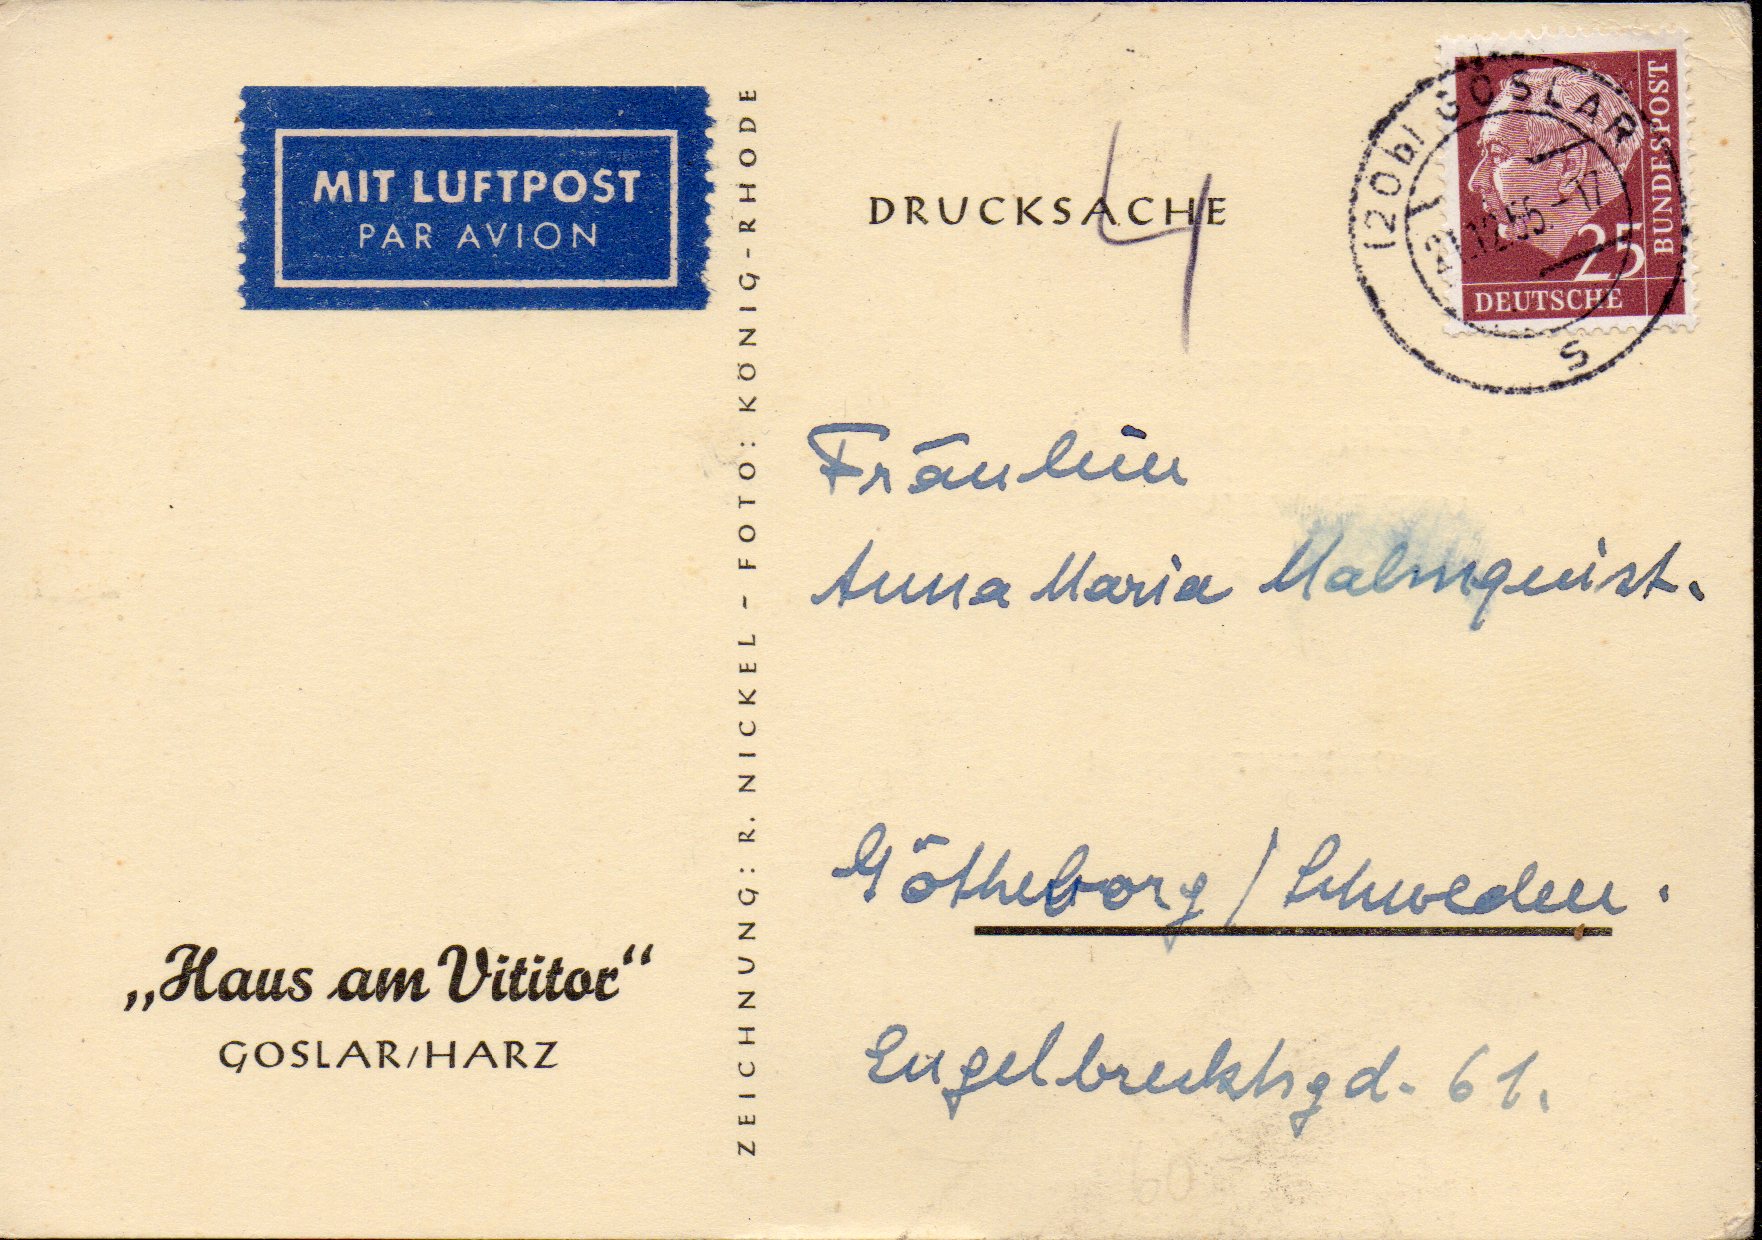 MIT LUFTPOST
PAR AVION
„Haus am Vititor“
GOSLAR/HARZ
ZEICHNUNG: R. NICKEL - FOTO: KÖNIG-RHODE
DRUCKSACHE
4
(20b) GOSLAR
12.55.-17
s
25
DEUTSCHE
BUNDESPOST
Fräulein
Anna Maria Malmquist.
Götheborg / Schweden.
Engelbrecktsgd. 61.
60